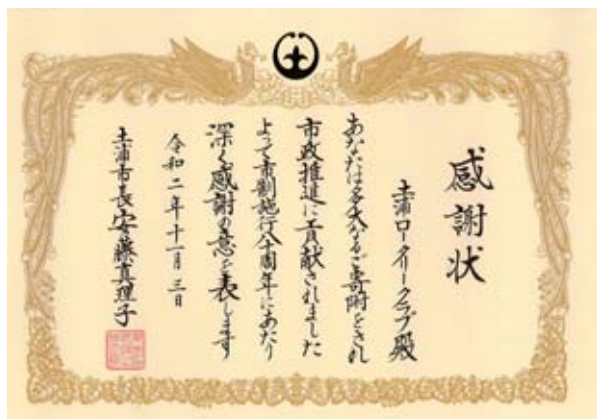 感謝状
土浦ロータリークラブ殿
あなたは多大なるご寄附をされ
市政推進に貢献されました
よって市制施行八十周年にあたり
深く感謝の意を表します
令和二年十一月三日
土浦市長安藤真理子